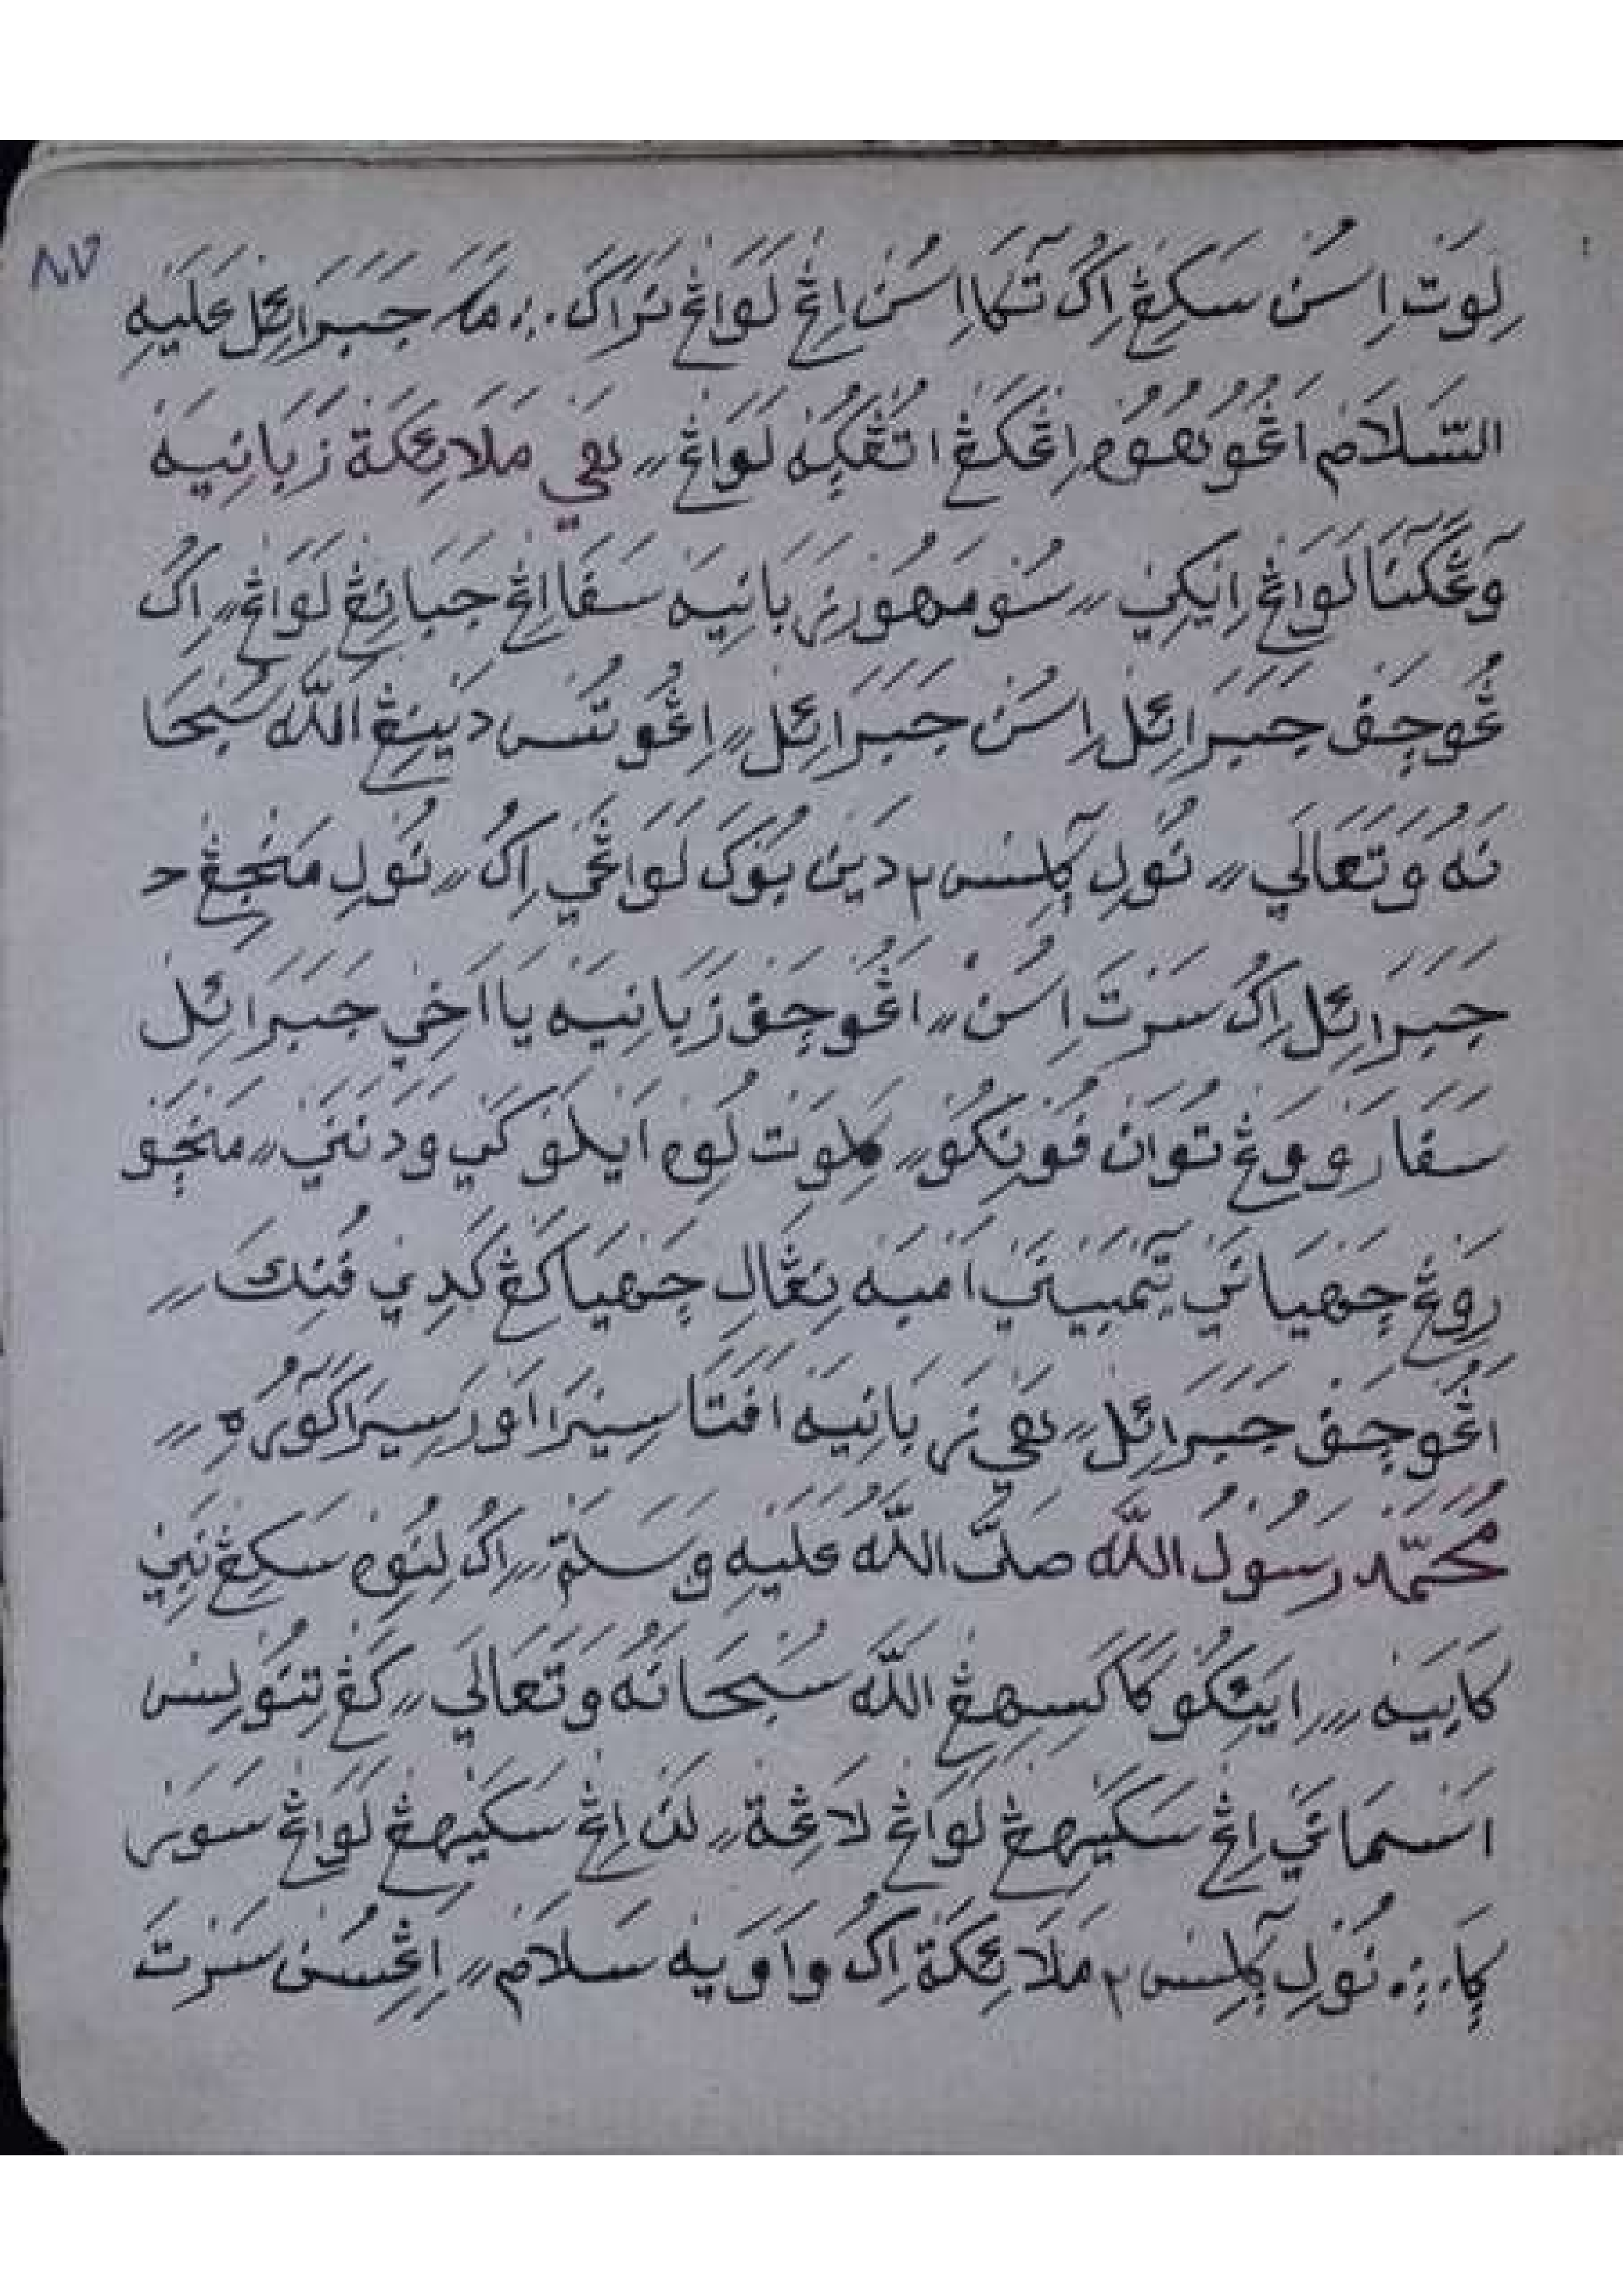 ٨٧
لِوَتْ اِسُنْ سَكِڠْ اِكُ تَكَا اِسُنْ اِڠْ لَوَاڠْ نَرَاكَ ؞ مَكَ جَبَرَائِلْ عَلَيْهِ
السَّلَامْ اَڠُوبُهُوهْ اِڠْكَڠْ اُتُڤْكِهْ لَوَاڠْ ؍؍ هَيْ مَلَائِكَةْ زَبَانِيَهْ
وَڠَكَنَا لَوَاڠْ اِيْكِيْ ؍؍ سُومَهُوْرْ زَبَانِيَهْ سَفَا اِڠْ جَبَانِڠْ لَوَاڠْ ؍؍ اِكُ
ڠُوجَفْ جَبَرَائِلْ اِسُنْ جَبَرَائِلْ ؍؍ اِڠُوتُسْ دَيْنِڠْ اللّٰه سُبْحَا
نَهُ وَتَعَالَي ؍؍ نُوْلِ ڮَلِسْ ٢ دَيْنْ بُوكَ لَوَاڠَيْ اِكُ ؍؍ نُوْلِ مَنْجِڠْ
جَبَرَائِلْ اِكُ سَرْتَ اِسُنْ ؍؍ اَڠُوجَفْ زَبَانِيَهْ يَا اَخِيْ جَبَرَائِلْ
سَفَا رَوْوَڠْ تُوَانْ فُوْنِكُوْ ؍؍ لِوَتْ لُوهْ اَيْلَوْكَيْ وَدَنَنَيْ ؍؍ مَنْچَوْ
رَوْڠْ چَهْيَانَيْ تَمْبَيْنَيْ اَمْبَهْ نِڠَالِ چَهْيَا كَڠْ كَدِيْ فُنِكَ ؍؍
اَڠُوجَفْ جَبَرَائِلْ ؍؍ هَيْ زَبَانِيَهْ اَفَتَا سِيْرَا اَوْرَ سِيْرَا كَوْرُهِ ؍؍
مُحَمَّدْ رَسُوْلُ اللّٰه صَلَّى اللّٰهُ عَلَيْهِ وَسَلَّمْ ؍؍ اِكُ لِنُوِهْ سَكِڠْ نَبِيْ
كَابَيْهْ ؍؍ اِيَيْكُو كَاكَسِهِڠْ اللّٰه سُبْحَانَهُ وَتَعَالَي ؍؍ كَڠْ تِنُوْلِسْ
اَسْمَانَيْ اِڠْ سَكَيْهِڠْ لَوَاڠْ لَاڠِةْ ؍؍ لَنْ اِڠْ سَكَيْهِڠْ لَوَاڠْ سَوَرْ
ڮَا ؞ نُوْلِ ڮَلِسْ ٢ مَلَائِكَةْ اِكُ وَاوَيْهْ سَلَامْ ؍؍ اِڠِسُنْ سَرْتَ